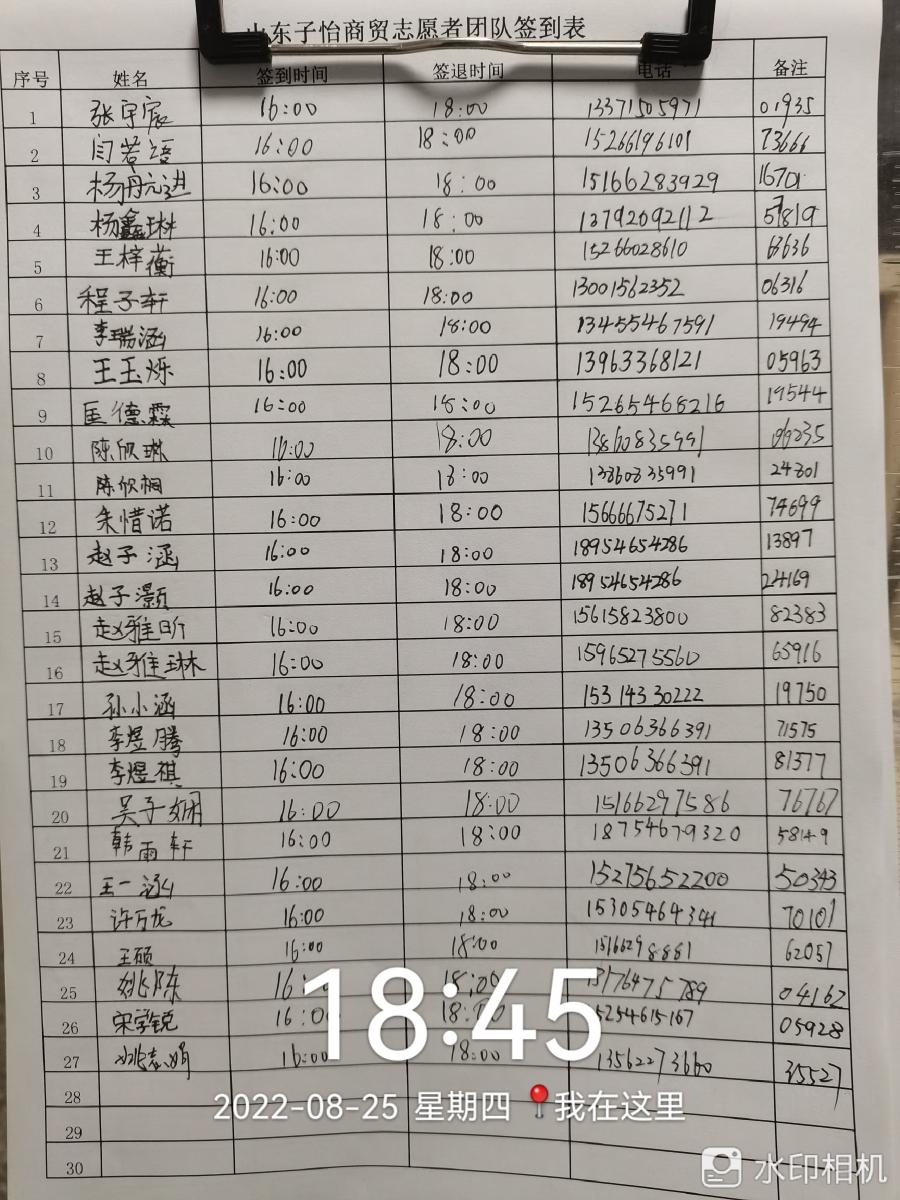 山东子怡商贸志愿者团队签到表
序号 姓名 签到时间 签退时间 电话 备注
1 张宇宸 16:00 18:00 13371505971 01935
2 闫若语 16:00 18:00 15266196101 73666
3 16:00 18:00 15166283929 16701
4 杨鑫琳 16:00 18:00 13792092112
5 王梓蘅 16:00 18:00 15266028610 63636
6 程子轩 16:00 18:00 13001562352 06316
7 李瑞涵 16:00 18:00 13455467591 19494
8 王玉烁 16:00 18:00 13963368121 05963
9 匡德霖 16:00 18:00 15265468216 19544
10 陈欣琳 16:00 18:00 13860835991
11 陈欣桐 16:00 18:00 13860835991 24801
12 朱惜诺 16:00 18:00 15666675271 74699
13 赵子涵 16:00 18:00 18954654286 13897
14 赵子灏 16:00 18:00 18954654286 24169
15 赵雅昕 16:00 18:00 15615823800 82383
16 赵雅琳 16:00 18:00 15965275560 65916
17 孙小涵 16:00 18:00 15314330222 19750
18 李煜腾 16:00 18:00 13506366391 71575
19 李煜祺 16:00 18:00 13506366391 81377
20 吴子娴 16:00 18:00 15166297586 76767
21 韩雨轩 16:00 18:00 18754679320 58149
22 王一涵 16:00 18:00 15275652200 50343
23 许万龙 16:00 18:00 15305464341 70101
24 王硕 16:00 18:00 15166298881 62057
25 姚陈 16: 18:00 13176475789 04162
26 宋学锐 16:00 18:00 5254615167 05928
27 姚志娟 16:00 18:00 13562273660 35527
28
29
30
18:45
2022-08-25 星期四 📍我在这里
水印相机